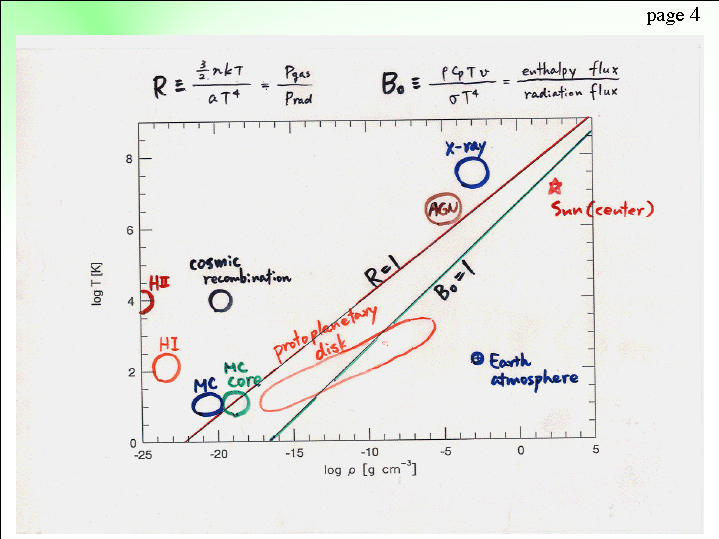 page 4
R ≡ 3/2 nkT / aT⁴ = Pgas / Prad
B₀ ≡ ρ Cp T v / σT⁴ = enthalpy flux / radiation flux
x-ray
AGN
Sun (center)
HII
cosmic recombination
R=1
B₀=1
protoplanetary
disk
HI
MC
MC core
Earth
atmosphere
log T [K]
8
6
4
2
0
-25
-20
-15
-10
-5
0
5
log ρ [g cm⁻³]